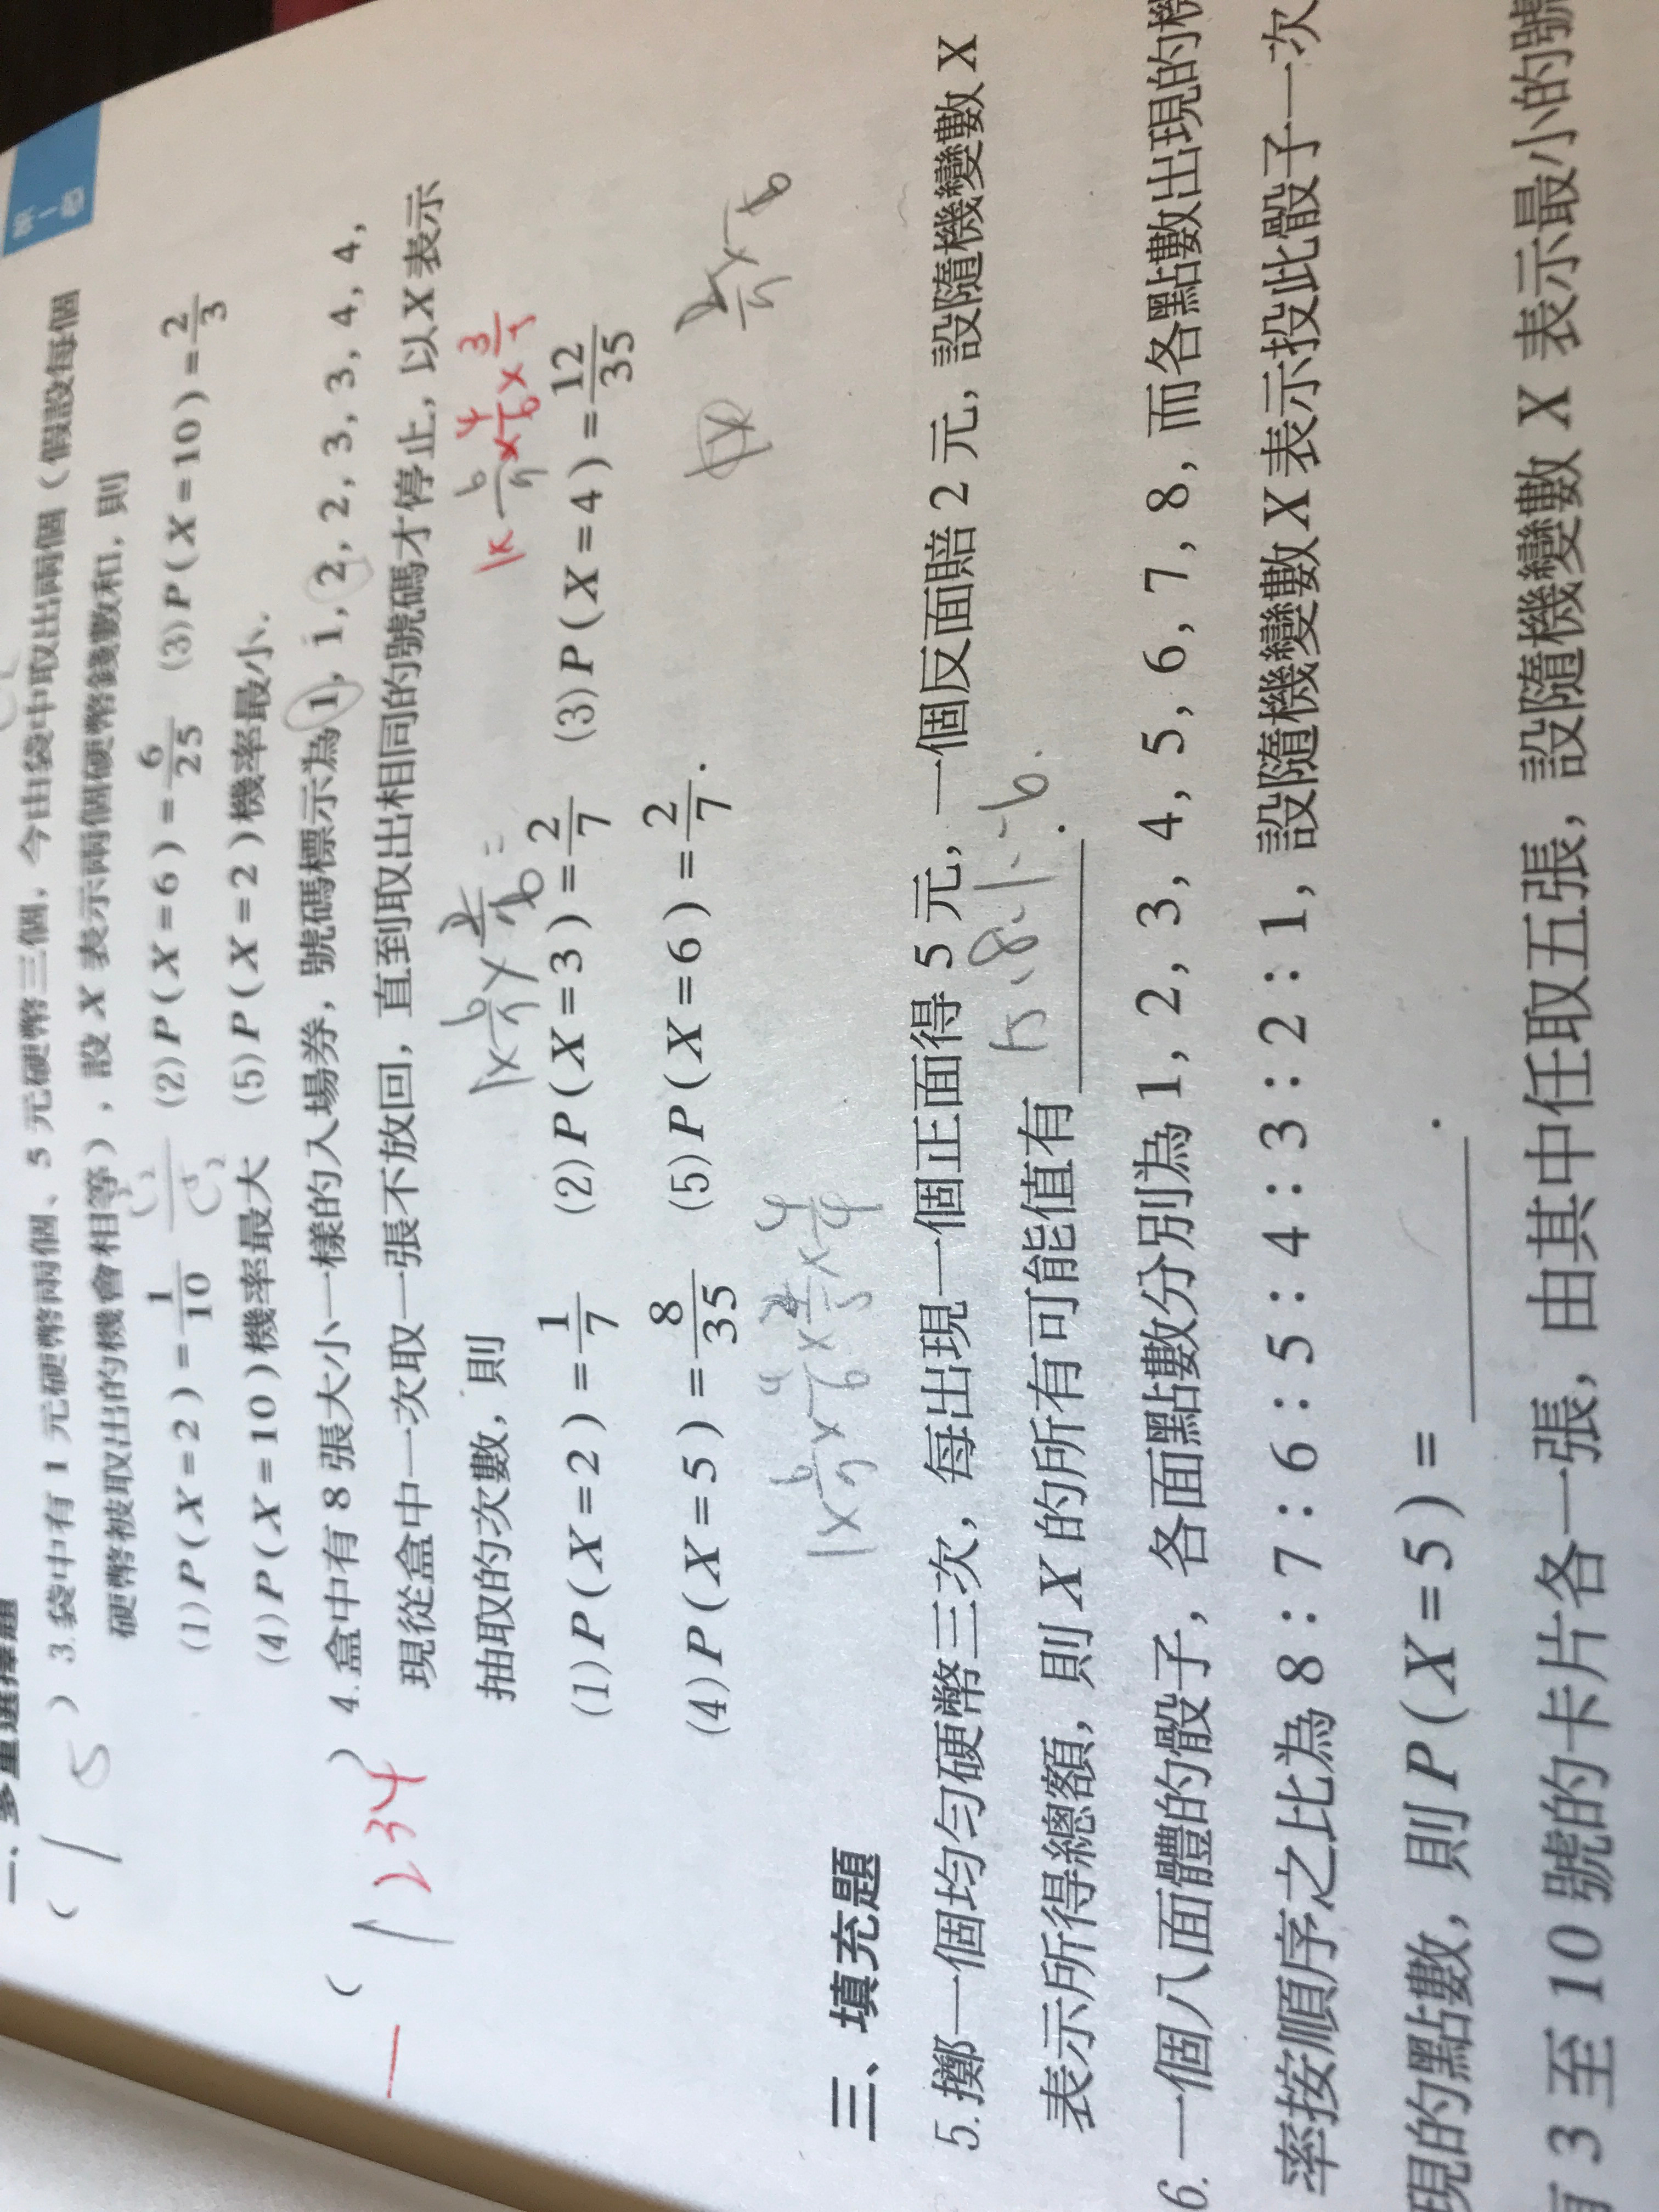 二、多重選擇題
( 1 5 ) 3.袋中有 1 元硬幣兩個、5 元硬幣三個，今由袋中取出兩個（假設每個
硬幣被取出的機會相等），設 X 表示兩個硬幣錢數和，則
(1)P(X=2)=1/10 (2)P(X=6)=6/25 (3)P(X=10)=2/3
(4)P(X=10)機率最大 (5)P(X=2)機率最小.
( 1 234 ) 4.盒中有 8 張大小一樣的入場券，號碼標示為 1, 1, 2, 2, 3, 3, 4, 4,
現從盒中一次取一張不放回，直到取出相同的號碼才停止，以 X 表示
抽取的次數，則
1×6/7×3/6=
1×6/7×4/6×3/5
(1)P(X=2)=1/7 (2)P(X=3)=2/7 (3)P(X=4)=12/35
(4)P(X=5)=8/35 (5)P(X=6)=2/7.
三、填充題
5.擲一個均勻硬幣三次，每出現一個正面得 5 元，一個反面賠 2 元，設隨機變數 X
表示所得總額，則 X 的所有可能值有
15、8、1、-6.
6.一個八面體的骰子，各面點數分別為 1, 2, 3, 4, 5, 6, 7, 8，而各點數出現的機
率按順序之比為 8：7：6：5：4：3：2：1，設隨機變數 X 表示投此骰子一次
現的點數，則 P(X=5)= .
3 至 10 號的卡片各一張，由其中任取五張，設隨機變數 X 表示最小的號